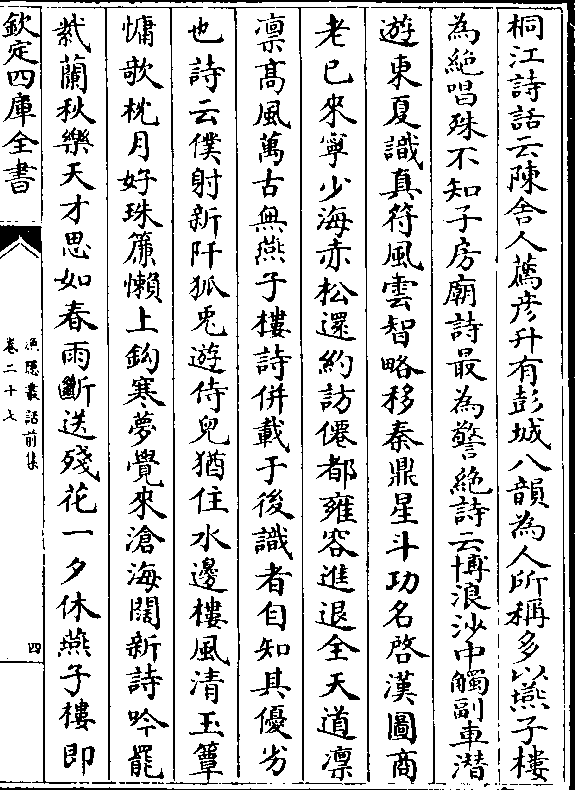 桐江詩話云陳舎人薦彦升有彭城八韻為人所稱多以燕子樓
為絶唱殊不知子房廟詩最為警絶詩云博浪沙中觸副車潜
遊東夏識真符風雲智略移秦鼎星斗功名啓漢圖商
老已來寧少海赤松還約訪僊都雍容進退全天道凛
凛髙風萬古無燕子樓詩併載于後識者自知其優劣
也詩云僕射新阡狐兎遊侍兒猶住水邊樓風清玉簟
慵歌枕月好珠簾懶上鈎寒夢覺來滄海闊新詩吟罷
紫蘭秋樂天才思如春雨斷送殘花一夕休燕子樓即
欽定四庫全書
漁隠叢話前集
卷二十七
四